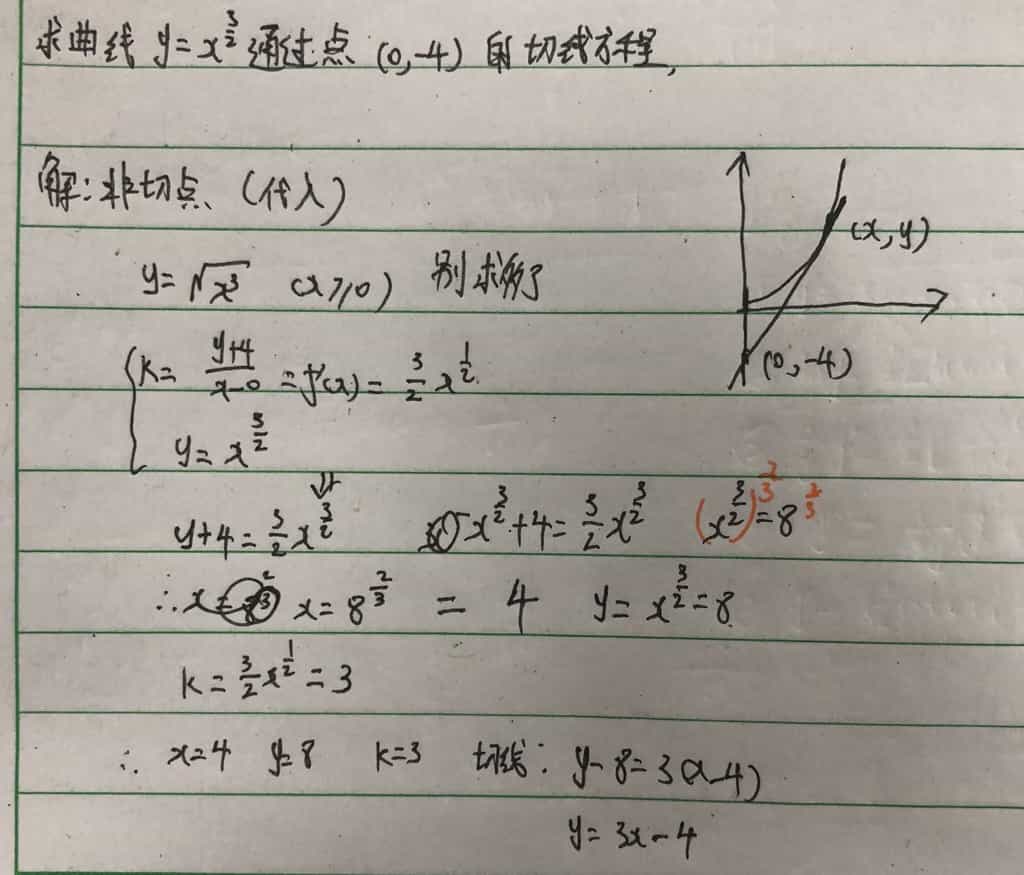 求曲线 y=x^{3/2} 通过点 (0,-4) 的切线方程,
解: 非切点 (代入)
(x,y)
y=√x³ (x≥0) 别求断了
(0,-4)
{ k= (y+4)/(x-0) = f'(x) = 3/2 x^{1/2}
y= x^{3/2}
⇓
y+4= 3/2 x^{3/2} x^{3/2}+4= 3/2 x^{3/2} (x^{3/2})^{2/3}=8^{2/3}
∴ x= 8^{2/3} = 4 y= x^{3/2}=8
k= 3/2 x^{1/2} =3
∴ x=4 y=8 k=3 切线: y-8=3(x-4)
y= 3x-4